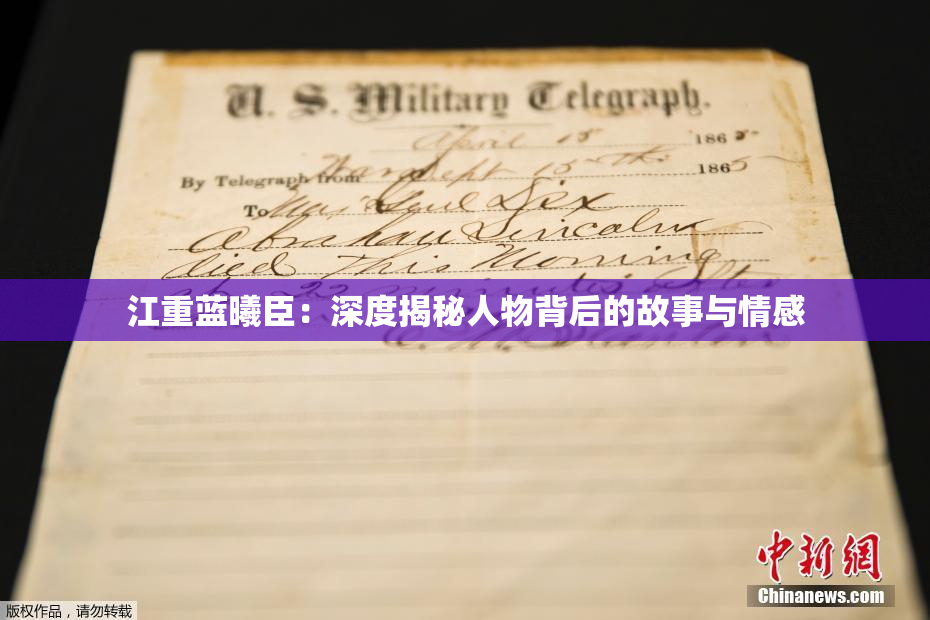 U. S. Military Telegraph.
April 15 1865
By Telegraph from War Dept 15th 1865
To Maj Genl Dix
Abraham Lincoln
died This Morning
at 22 minutes after
江重蓝曦臣：深度揭秘人物背后的故事与情感
E. M. Stanton
中新网
Chinanews.com
版权作品，请勿转载